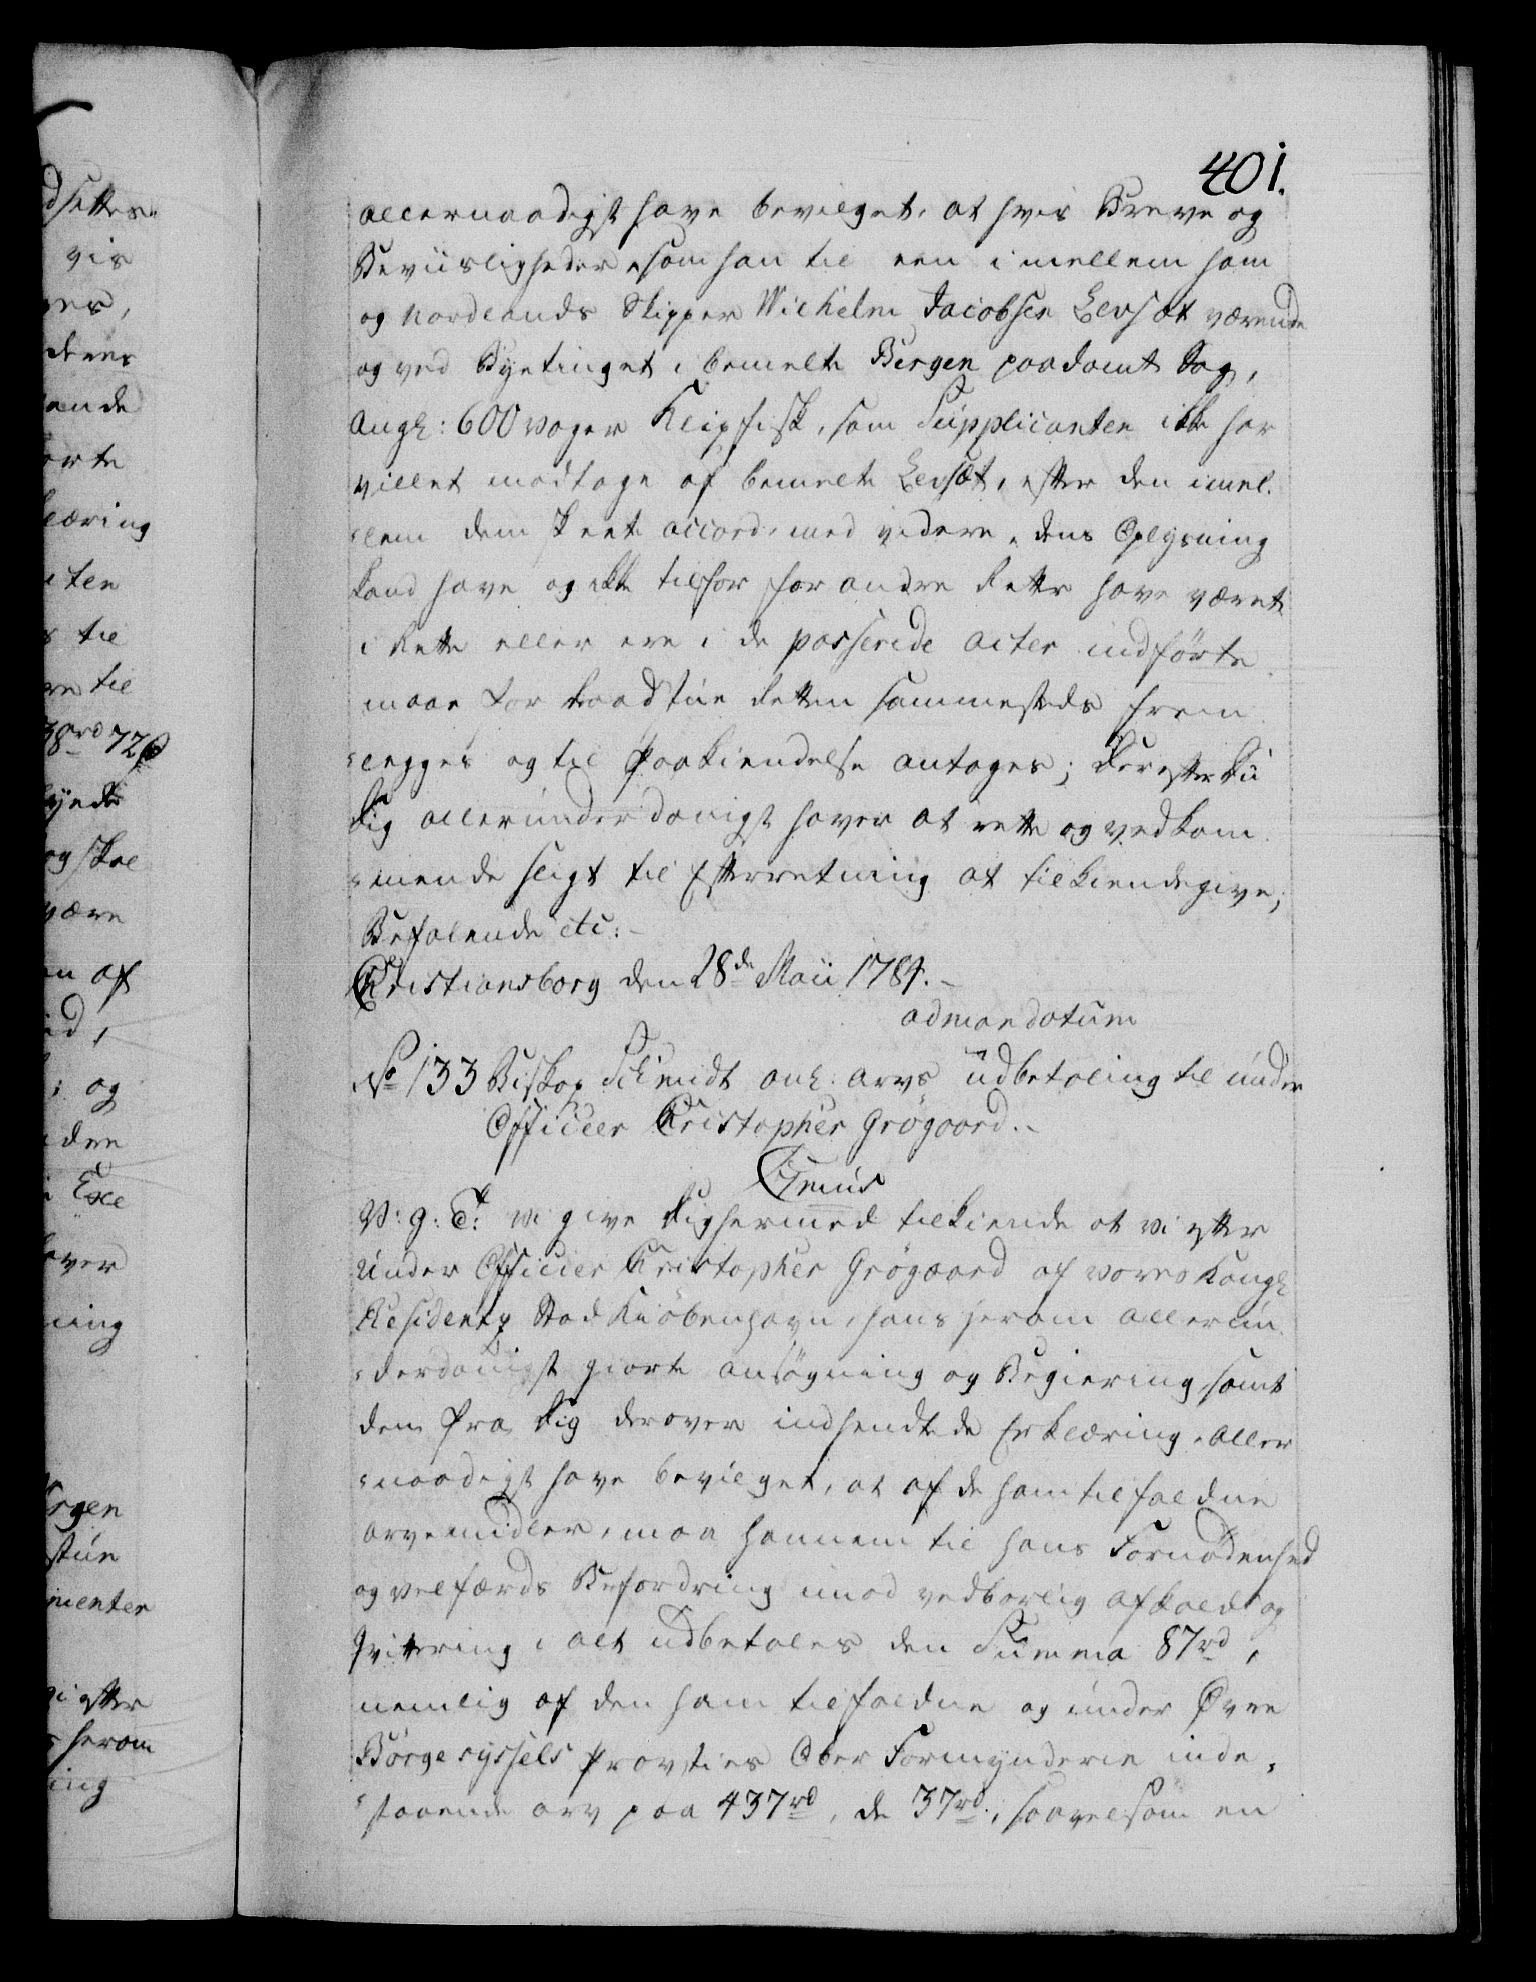 401.
allernaadigst have bevilget, at hvis Breve og
Beviisligheder, som han til een imellem ham
og Nordlands Skipper Wichelm Jacobsen Levsæt værende
og ved Byetinget i bemelte Bergen paadømt Sag,
angl: 600 woger Klipfisk, som Supplicanten ikke har
villet modtage af bemelte Levsæt, efter den imel-
-lem dem skeet accord, med videre, dens Oplysning
kand have og ikke tilfor for andre Rette have været
i Rette eller ere i de passerede acter indførte
maae for Raadstue Retten sammesteds frem
-legges og til Paakiendelse antages; Derefter Du
Dig allerunderdanigst haver at rette og vedkom-
-mende sligt til Efterretning at tilkiendegive;
Befalende etc:
Christiansborg den 28de Maii 1784.
ad mandatum
No 133 Biskop Schmidt anl: arvs udbetaling til under
Officeer Christopher Grøgaard.
C7mus
V: g: T: Vi give Dig hermed tilkiende at vi efter
Under Officeer Christopher Grøgaard af vores Kongl
Residentz Stad Kiøbenhavn, hans herom allerun-
-derdanigst giorte ansøgning og Begiering, samt
den fra Dig derover indsendte Erklæring, aller
-naadigst have bevilget, at af de ham tilfaldne
arvemidler, maa hannem til hans Fornødenhed
og velfærds Befordring imod vedbørlig afkald og
Qvitering i alt udbetales den Summa 87rd,
nemlig af den ham tilfaldne og under Øvre
Borgesyssels Provsties Ober Formynderie inde-
-staaende arv paa 437rd, de 37rd, saavelsom en